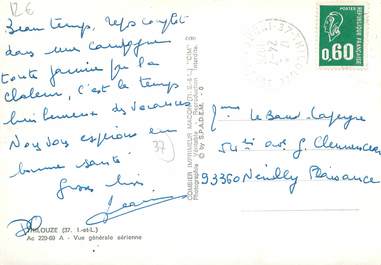 12 €
Beau temps, repos complet
dans une campagne
toute jaunie par la
chaleur, c'est le temps
bien heureux des vacances
Nous vous espérons en
bonne santé.
Gros bises.
Jeanne
37
THILOUZE (37. I.-et-L.)
Ac 220-69 A - Vue générale aérienne
COMBIER IMPRIMEUR MACON (71. S.-&-L.) "CIM"
Photographie
© by S.P.A.D.E.M.
POSTES
RÉPUBLIQUE FRANÇAISE
0,60
37
Mme Le Baud Lapeyre
54 av. G. Clemenceau
93360 Neuilly Plaisance